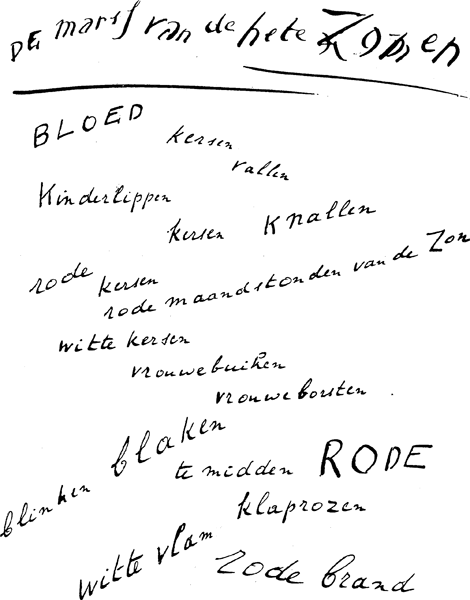 DE marsj van de hete Zomer
BLOED kersen
vallen
Kinderlippen
kersen Knallen
rode kersen
rode maandstonden van de Zon
witte kersen
vrouwebuiken
vrouweborsten .
blinken blaken
te midden RODE
klaprozen
witte vlam rode brand